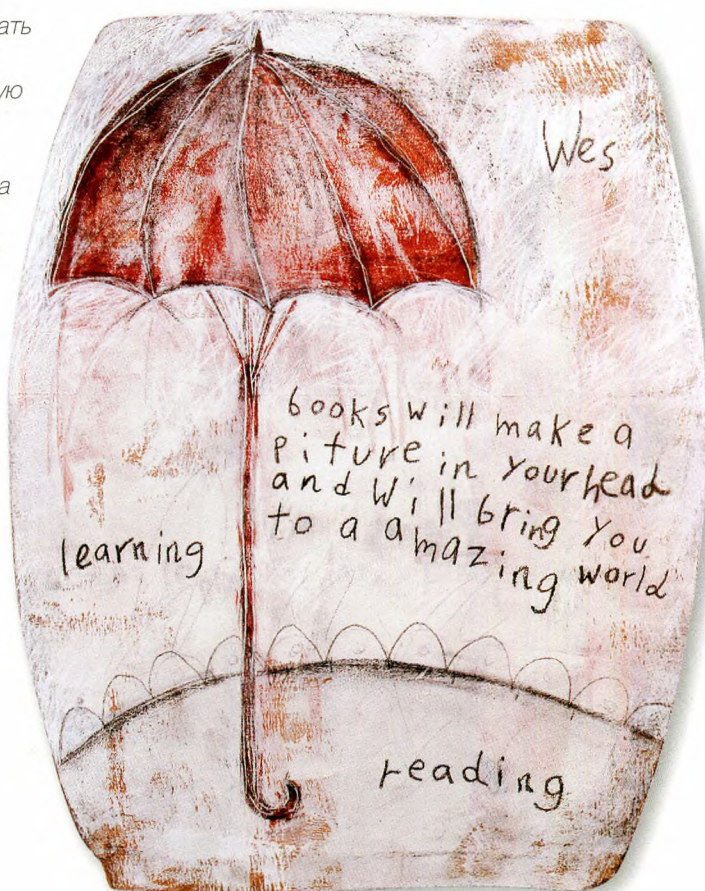 ать
ую
а
Wes
books will make a
piture in your head
and will bring you
to a amazing world
learning
reading